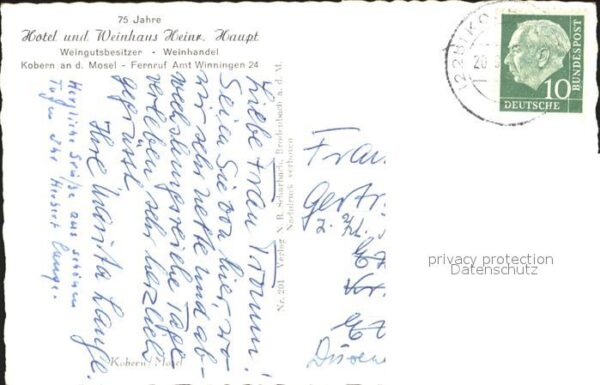 75 Jahre
Hotel und Weinhaus Heinr. Haupt
Weingutsbesitzer - Weinhandel
Kobern an d. Mosel - Fernruf Amt Winningen 24
Liebe Frau
Seien Sie von hier, wo
wir sehr nette und ab-
wechslungsreiche Tage
verleben sehr herzlich
gegrüsst
Ihre Marita Lange.
Herzliche Grüße aus schönen
Tagen Ihr Herbert Lange.
Kobern/Mosel
Nr. 201 Verlag N. B. Scharbach, Brodenbach a. d. M.
Nachdruck verboten
(22b) KO
10
DEUTSCHE
BUNDESPOST
Frau
Gertr.
privacy protection
Datenschutz